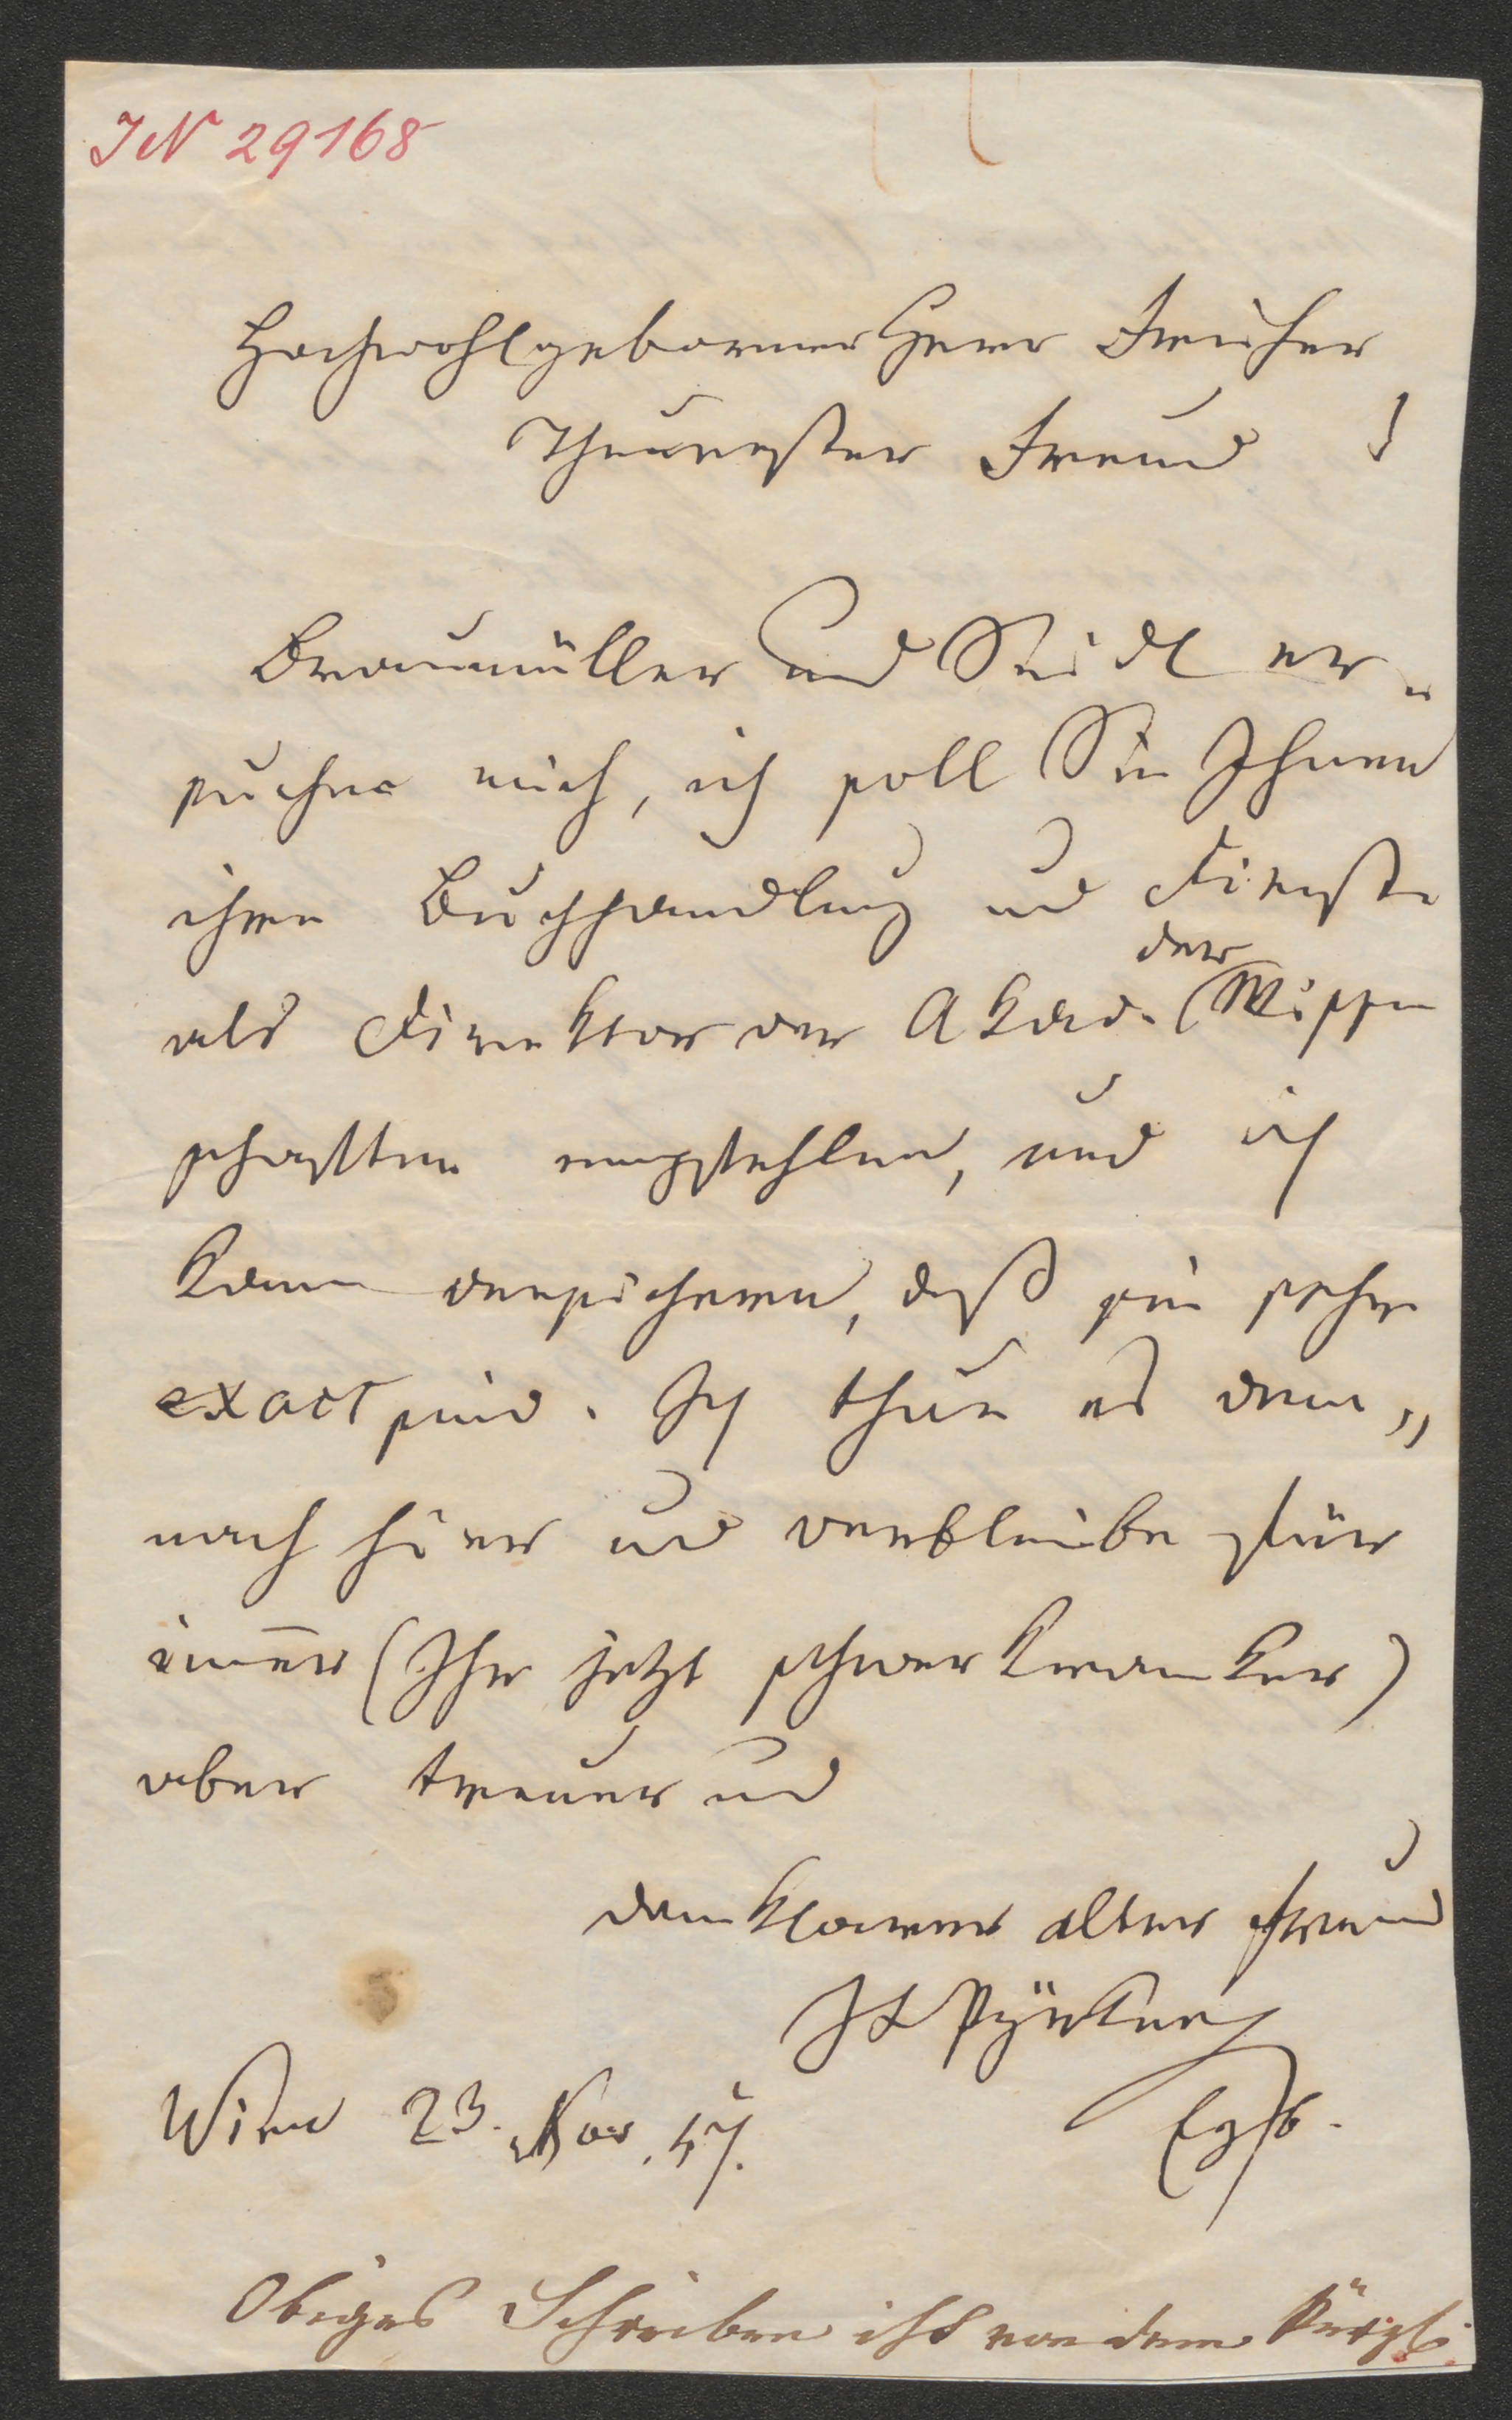 IN 29168
Hochwohlgeborner Herr Freiherr
Theuerster Freund !
Braumüller und Seidl er-
suchen mich, ich soll Sie Ihnen
ihre Buchhandlung und Dienste
der
als Direktor der Akad. Wissen
schaften empfehlen, und ich
kann versichern, daß sie sehr
exact sind. Ich thue es dem„
nach hier und verbleibe für
im̄er (Ihr jetzt schwer kranker)
aber treuer und
dankbarer alter Freund
JL Pyrker
Wien 23. Nov. 47.
Egsb.
Obiges Schreiben ist von dem